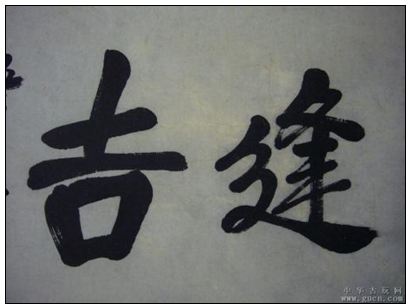 逢吉
中华古玩网
www.gucn.com